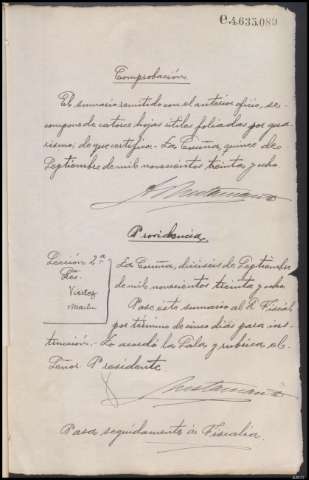 C.4.635.089
Comprobación
El sumario remitido con el anterior oficio, se
compone de catorce hojas útiles foliadas por gua
rismo; de que certifico. La Coruña, quince de
Septiembre de mil novecientos treinta y ocho
Bustamante
Providencia
Sección 2ª
Stes.
Vieitez
Martin
La Coruña, dieciseis de Septiembre
de mil novecientos treinta y ocho
Pase este sumario al S. Fiscal
por término de cinco dias para ins-
trucción. Lo acordó la Sala y rubrica el
Señor Presidente
Bustamante
Pasa seguidamente á Fiscalia